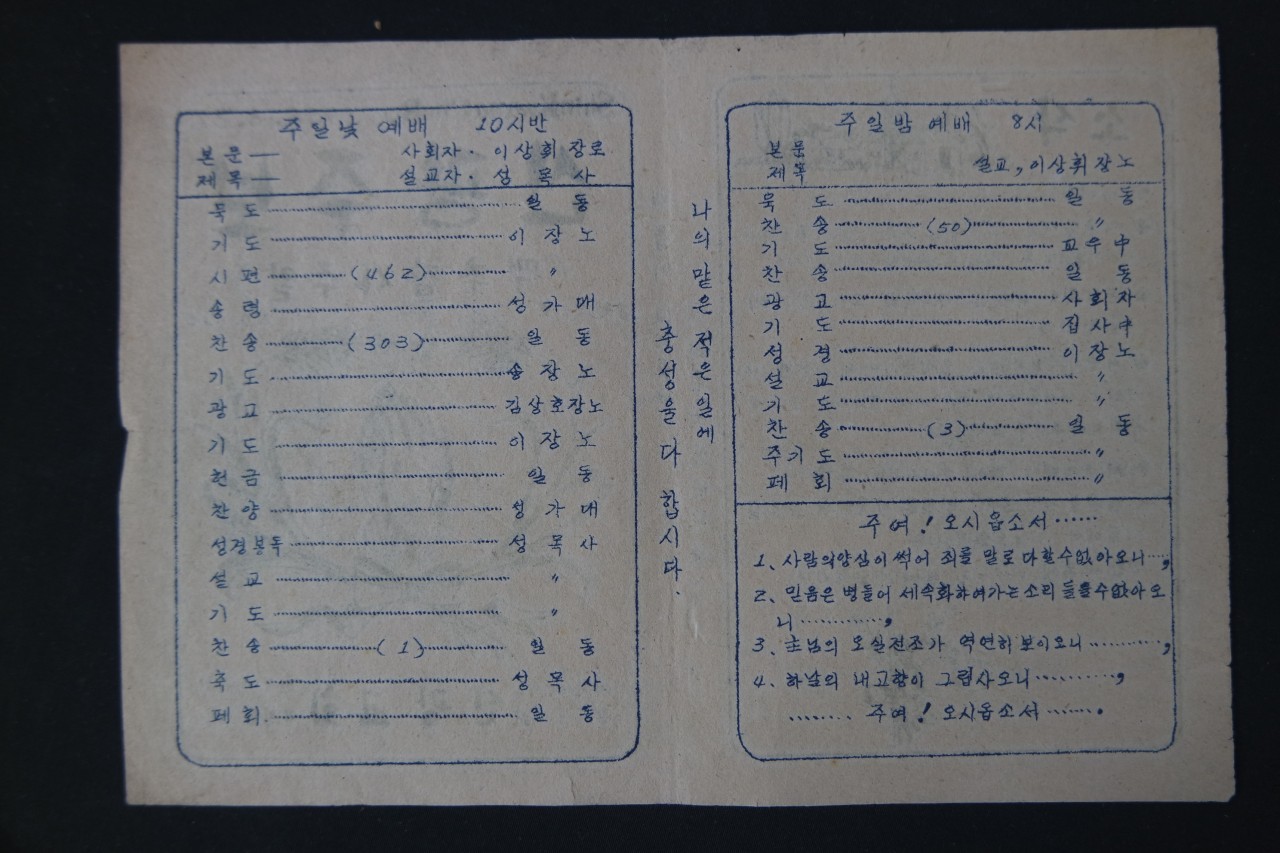 주일낮 예배 10시반
본문 — 사회자· 이상휘장로
제목 — 설교자· 성목사
묵도 일동
기도 이장노
시편 (462) 〃
송령 성가대
찬송 (303) 일동
기도 송장노
광고 김상호장노
기도 이장노
헌금 일동
찬양 성가대
성경봉독 성목사
설교 〃
기도 〃
찬송 (1) 일동
축도 성목사
폐회. 일동
나의 맡은 적은 일에
충성을 다 합시다.
주일밤 예배 8시
본문
제목 설교, 이상휘장노
묵도 일동
찬송 (50) 〃
기도 교우中
찬송 일동
광고 사회자
기도 집사中
성경 이장노
설교 〃
기도 〃
찬송 (3) 일동
주기도 〃
폐회 〃
주여! 오시옵소서……
1、사람의양심이 썩어 죄를 말로다할수없아오니…,
2、믿음은 병들어 세속화하여가는소리 들을수없아오
니…………,
3、主님의 오실전조가 역연히 보이오니…………,
4、하날의 내고향이 그립사오니…………,
……… 주여! 오시옵소서…….